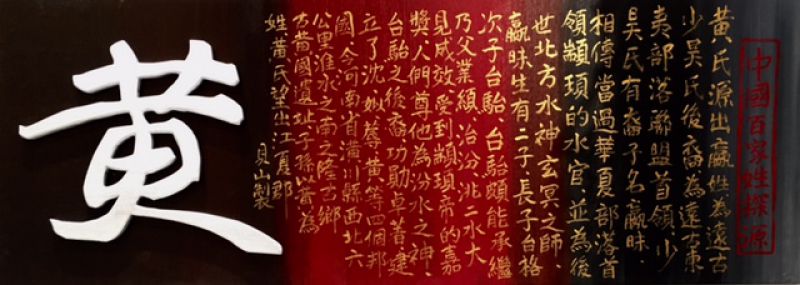 中國百家姓探源
黃氏源出嬴姓為遠古
少昊氏後裔為遠古東
夷部落聯盟首領少
昊氏有裔子名嬴昧、
相傳當過華夏部落首
領顓頊的水官、並為後
世北方水神玄冥之師、
嬴昧生有二子、長子台格
次子台駘 台駘頗能承繼
乃父業績、治汾洮二水大
見成效、受到顓頊帝的嘉
獎人們尊他為汾水之神、
台駘之後裔功勛卓著建
立了沈、姒、蓐、黃等四個邦
國、今河南省潢川縣西北六
公里淮水之南之隆古鄉
有黃國遺址子孫以黃為
姓黃氏望出江夏郡
貝山製
黃